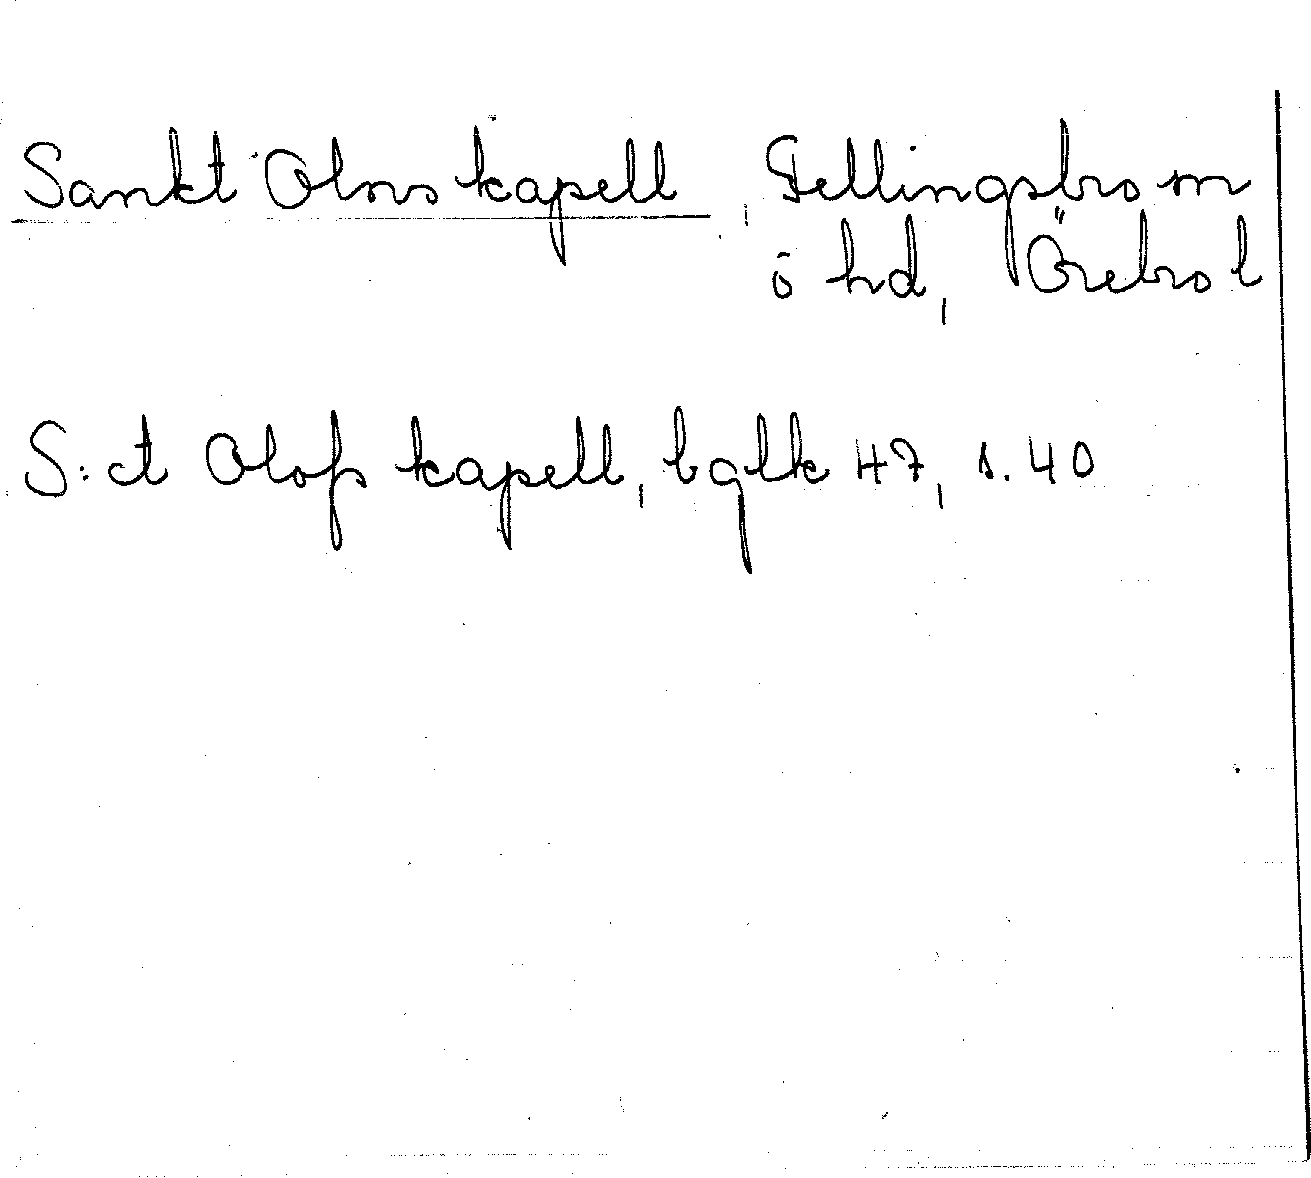 Sankt Olovs kapell, Fellingsbro sn
o hd, Örebro l
S:ct Olofs kapell, bglk 47, s. 40